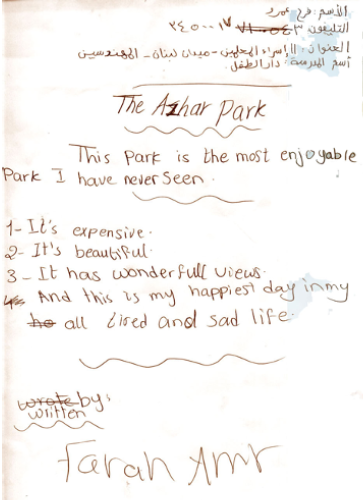 الأسم: فرح عمرو
التليفون ٧١٠٠٥٤٣ ٣٤٥٠٠١٧
العنوان: ١١ إسراء المعلمين - ميدان لبنان - المهندسين
أسم المدرسة: دار الطفل
The Azhar Park
This Park is the most enjoyable
Park I have never seen.
1- It's expensive.
2- It's beautiful.
3- It has wonderfull views.
4- And this is my happiest day in my
all lived and sad life.
wrote by:
written
Farah Amr